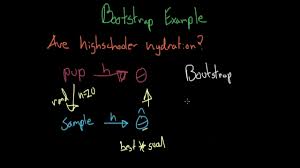 Bootstrap Example
Are highschooler hydration?
pop h θ
Bootstrap
rand n=20
Sample h θ̂
best